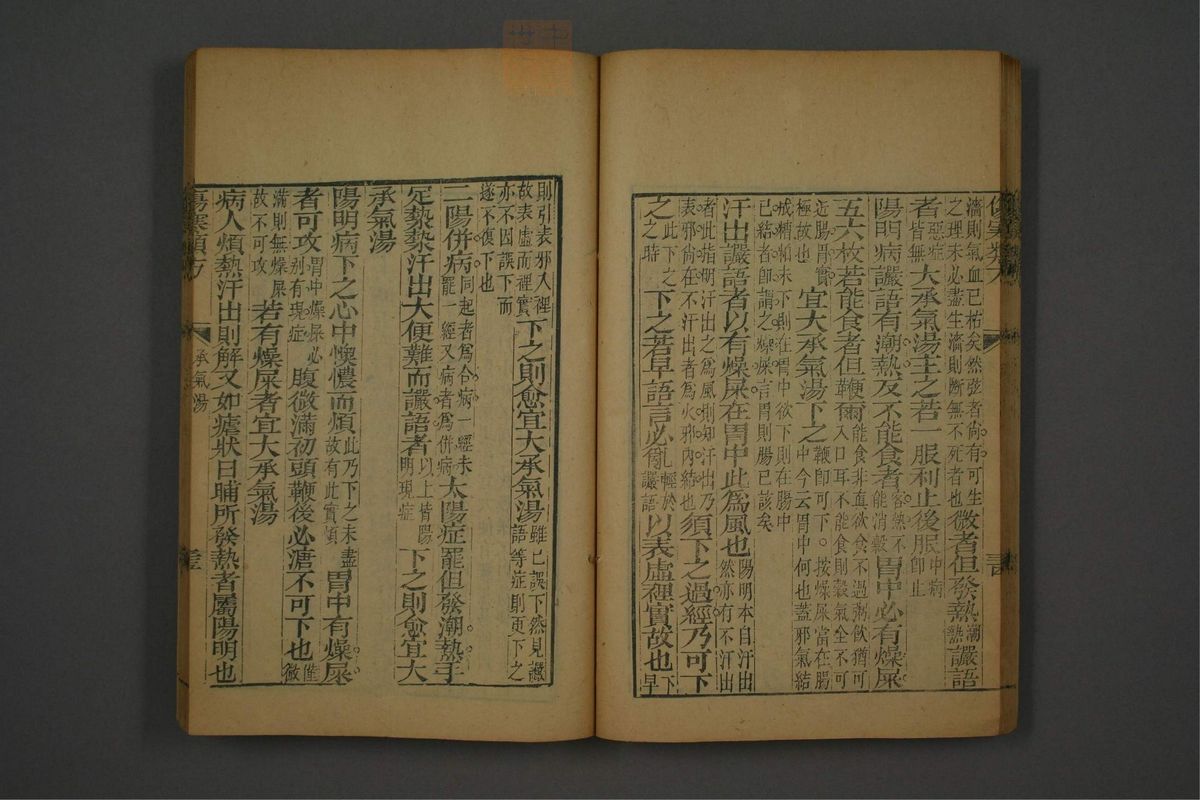 濇則氣血已枯矣然弦者尚有可生
之理未必盡生濇則斷無不死者也
微者但發熱潮熱讝語
者惡症皆無大承氣湯主之若一服利止後服中病即止
陽明病讝語有潮熱反不能食者客熱不能消穀胃中必有燥屎
五六枚若能食者但鞕爾能食非眞欲食不過粥飲猶可
入口耳不能食則穀氣全不可
近腸胃實極故也宜大承氣湯下之鞕即可下。按燥屎當在腸
中今云胃中何也蓋邪氣結
成糟粕未下則在胃中欲下則在腸中
已結者即謂之燥屎言胃則腸已該矣
汗出讝語者以有燥屎在胃中此爲風也陽明本自汗出
然亦有不汗出
者此指明汗出之爲風則知汗出乃
表邪尚在不汗出者爲火邪內結也
須下之過經乃可下
之此下之之時下之若早語言必亂輕於讝語以表虛裡實故也下早
則引表邪入裡
故表虛而裡實
亦不因誤下而
遂不復下也
下之則愈宜大承氣湯雖已誤下然見讝
語等症則更下之
二陽併病同起者爲合病一經未
罷一經又病者爲併病
太陽症罷但發潮熱手
足漐漐汗出大便難而讝語者以上皆陽明現症下之則愈宜大
承氣湯
陽明病下之心中懊憹而煩此乃下之未盡
故有此實煩
胃中有燥屎
者可攻胃中燥屎必
别有現症
腹微滿初頭鞕後必溏不可下也惟微
滿則無燥屎故不可攻若有燥屎者宜大承氣湯
病人煩熱汗出則解又如瘧狀日晡所發熱者屬陽明也
傷寒類方
承氣湯